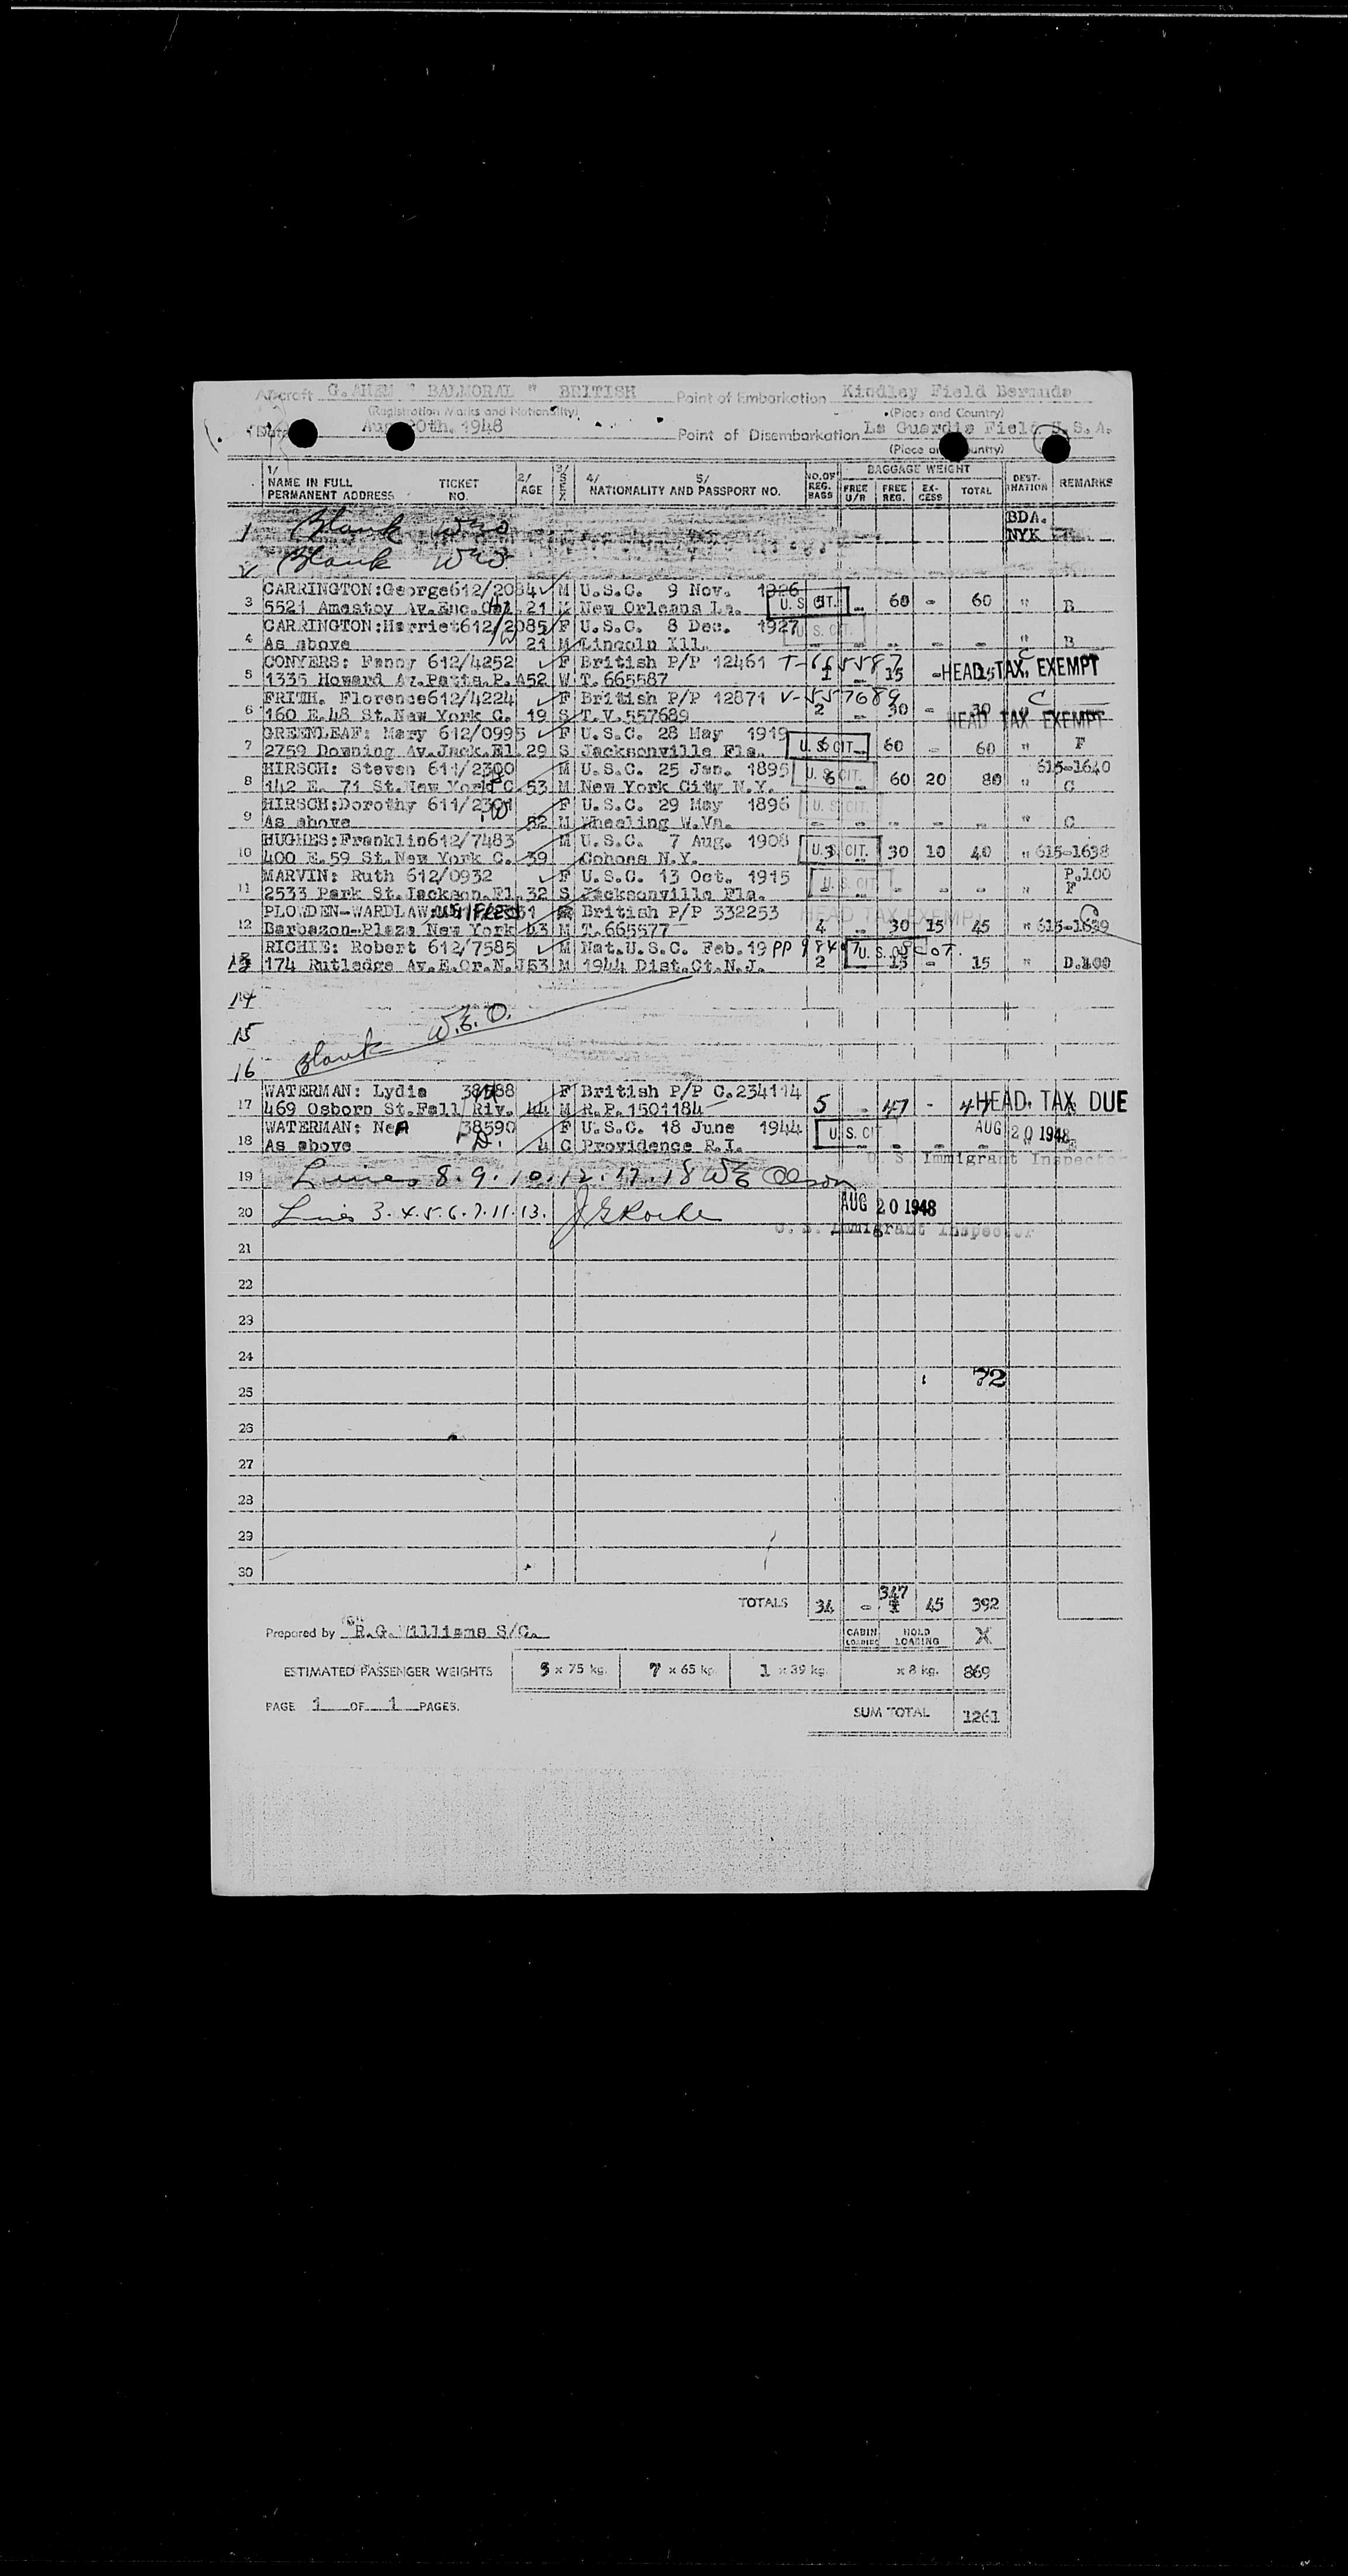 Aircraft G. AHEM " BALMORAL " BRITISH Point of Embarkation Kindley Field Bermuda
(Registration Marks and Nationality) (Place and Country)
Date Aug. 20th. 1948 Point of Disembarkation La Guardia Field U.S.A.
(Place and Country)
1/ NAME IN FULL PERMANENT ADDRESS TICKET NO. 2/ AGE 3/ SEX 4/ 5/ NATIONALITY AND PASSPORT NO. NO. OF REG. BAGS BAGGAGE WEIGHT FREE U/R FREE REG. EXCESS TOTAL DESTINATION REMARKS
1 Blank BDA. NYK
2 Blank
CARRINGTON:George612/2084 M U.S.C. 9 Nov. 1926
3 5521 Amestoy Av.Enc.Cal. 21 M New Orleans La. U.S. CIT. - 60 - 60 " B
CARRINGTON:Harriet612/2085 F U.S.C. 8 Dec. 1927 U.S. CIT.
4 As above 21 M Lincoln Ill. - - - - " B
CONYERS: Fanny 612/4252 F British P/P 12461 T-665587 C
5 1335 Howard Av. P.A 52 W T.665587 1 15 - HEAD TAX EXEMPT
FRITH. Florence612/4224 F British P/P 12871 V-557689 C
6 160 E.48 St.New York C. 19 S T.V.557689 2 - 30 - 30 HEAD TAX EXEMPT
GREENLEAF: Mary 612/0995 F U.S.C. 28 May 1919
7 2759 Downing Av.Jack.Fl. 29 S Jacksonville Fla. U.S. CIT 60 - 60 " F
HIRSCH: Steven 611/2300 M U.S.C. 25 Jan. 1895 U.S. CIT. 615-1640
8 142 E. 71 St.New York C. 53 M New York City N.Y. 6 - 60 20 80 " C
HIRSCH:Dorothy 611/2301 F U.S.C. 29 May 1896 U.S. CIT.
9 As above 52 M Wheeling W.Va. - - - - - " C
HUGHES:Franklin612/7483 M U.S.C. 7 Aug. 1908
10 400 E.59 St.New York C. 39 Cohoes N.Y. 3 U.S. CIT. 30 10 40 " 615-1638
MARVIN: Ruth 612/0932 F U.S.C. 13 Oct. 1915 U.S. CIT P.100
11 2533 Park St.Jackson.Fl. 32 S Jacksonville Fla. - - - - " F
PLOWDEN-WARDLAW: British P/P 332253 HEAD TAX EXEMPT
12 Barbazon-Plaza New York 43 M T.665577 4 - 30 15 45 " 615-1639
RICHIE: Robert 612/7585 M Nat.U.S.C. Feb.19 PP U.S. CIT.
13 174 Rutledge Av.E.Or.N.J 53 M 1944 Dist.Ct.N.J. 2 15 - 15 " D.100
14
15
16 Blank W.E.O.
WATERMAN: Lydia 38588 F British P/P C.234114
17 469 Osborn St.Fall Riv. 44 M R.P.1501184 5 - 47 - 47 HEAD TAX DUE
WATERMAN: Nea 38590 F U.S.C. 18 June 1944 U.S. CIT AUG 20 1948
18 As above 4 C Providence R.I. - - - -
U. S. Immigrant Inspector
19 Lines 8.9.10.12.17.18 WE Olson
20 Lines 3.4.5.6.7.11.13. J G Roche AUG 20 1948
U. S. Immigrant Inspector
21
22
23
24
72
25
26
27
28
29
30
TOTALS 34 - 347 45 392
Prepared by R.G.Williams S/C. CABIN LOADING HOLD LOADING X
ESTIMATED PASSENGER WEIGHTS 5 x 75 kg. 7 x 65 kg. 1 x 39 kg. x 8 kg. 869
PAGE 1 OF 1 PAGES. SUM TOTAL 1261